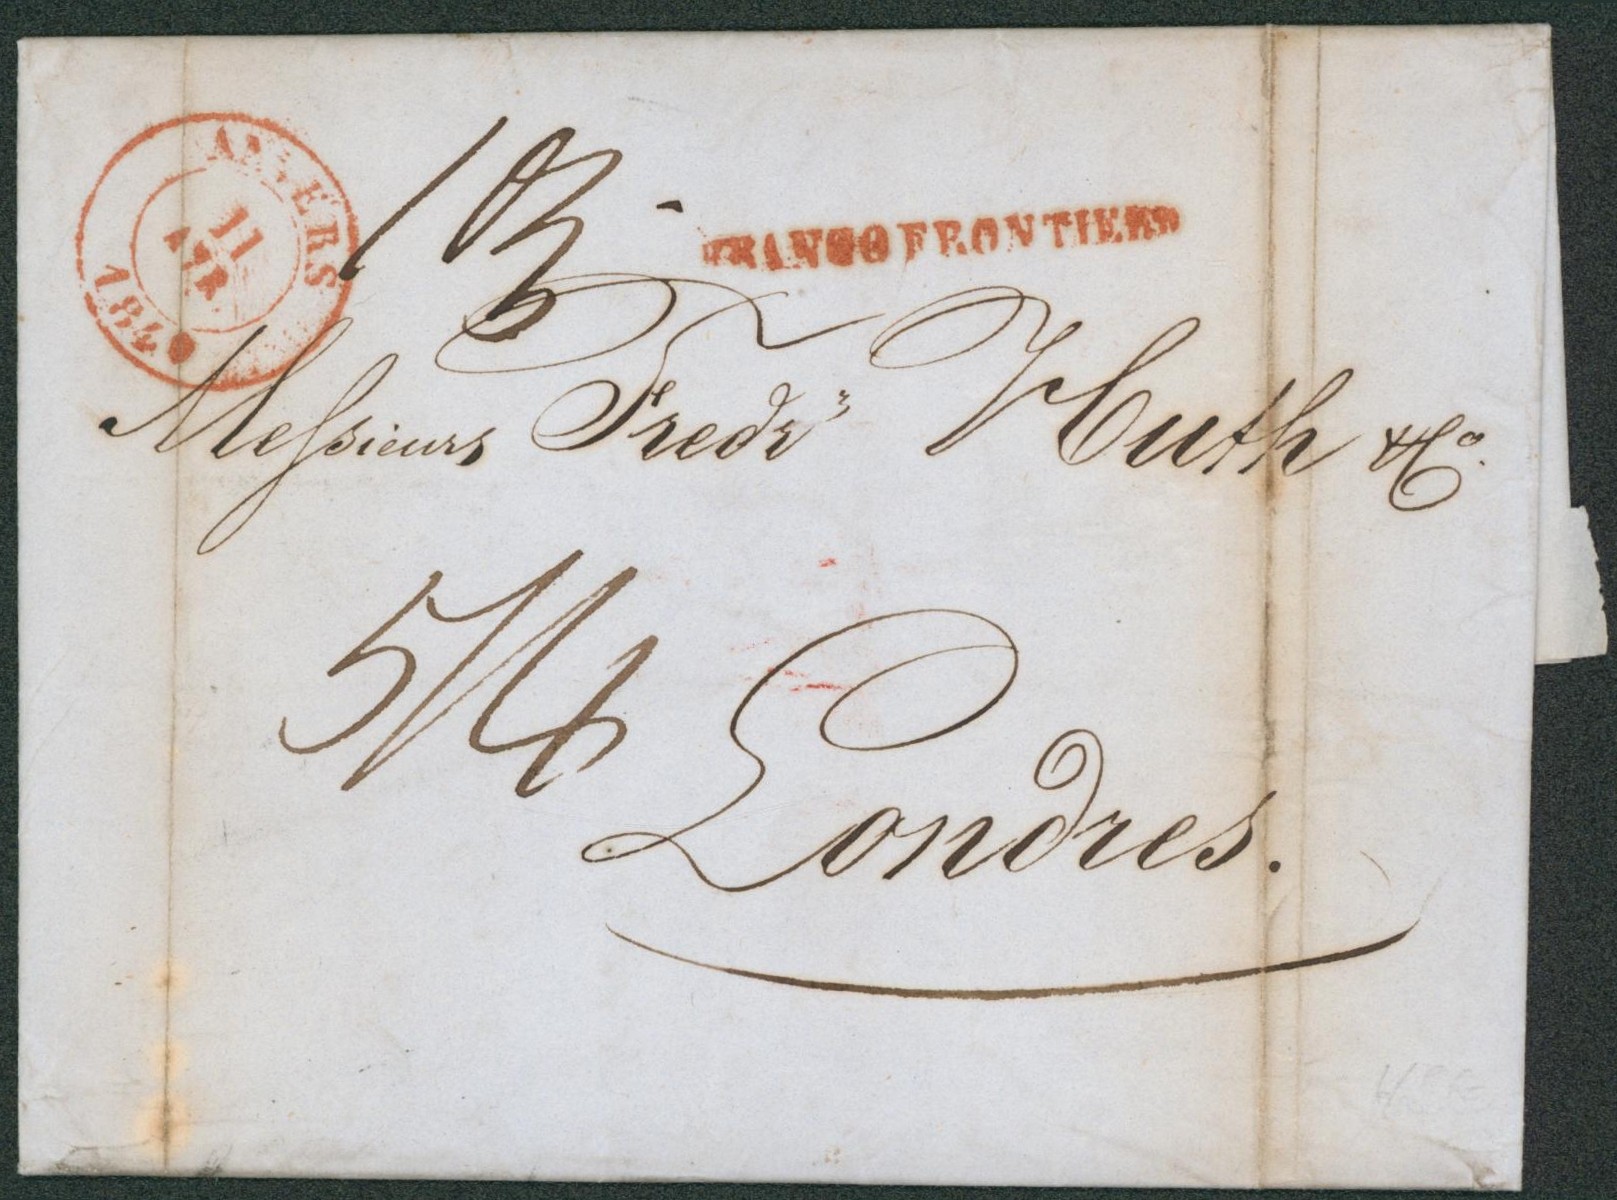 ANVERS
11
AVR.
1840
FRANCO FRONTIERE
Messieurs Fredr. Huth & Co.
Londres.